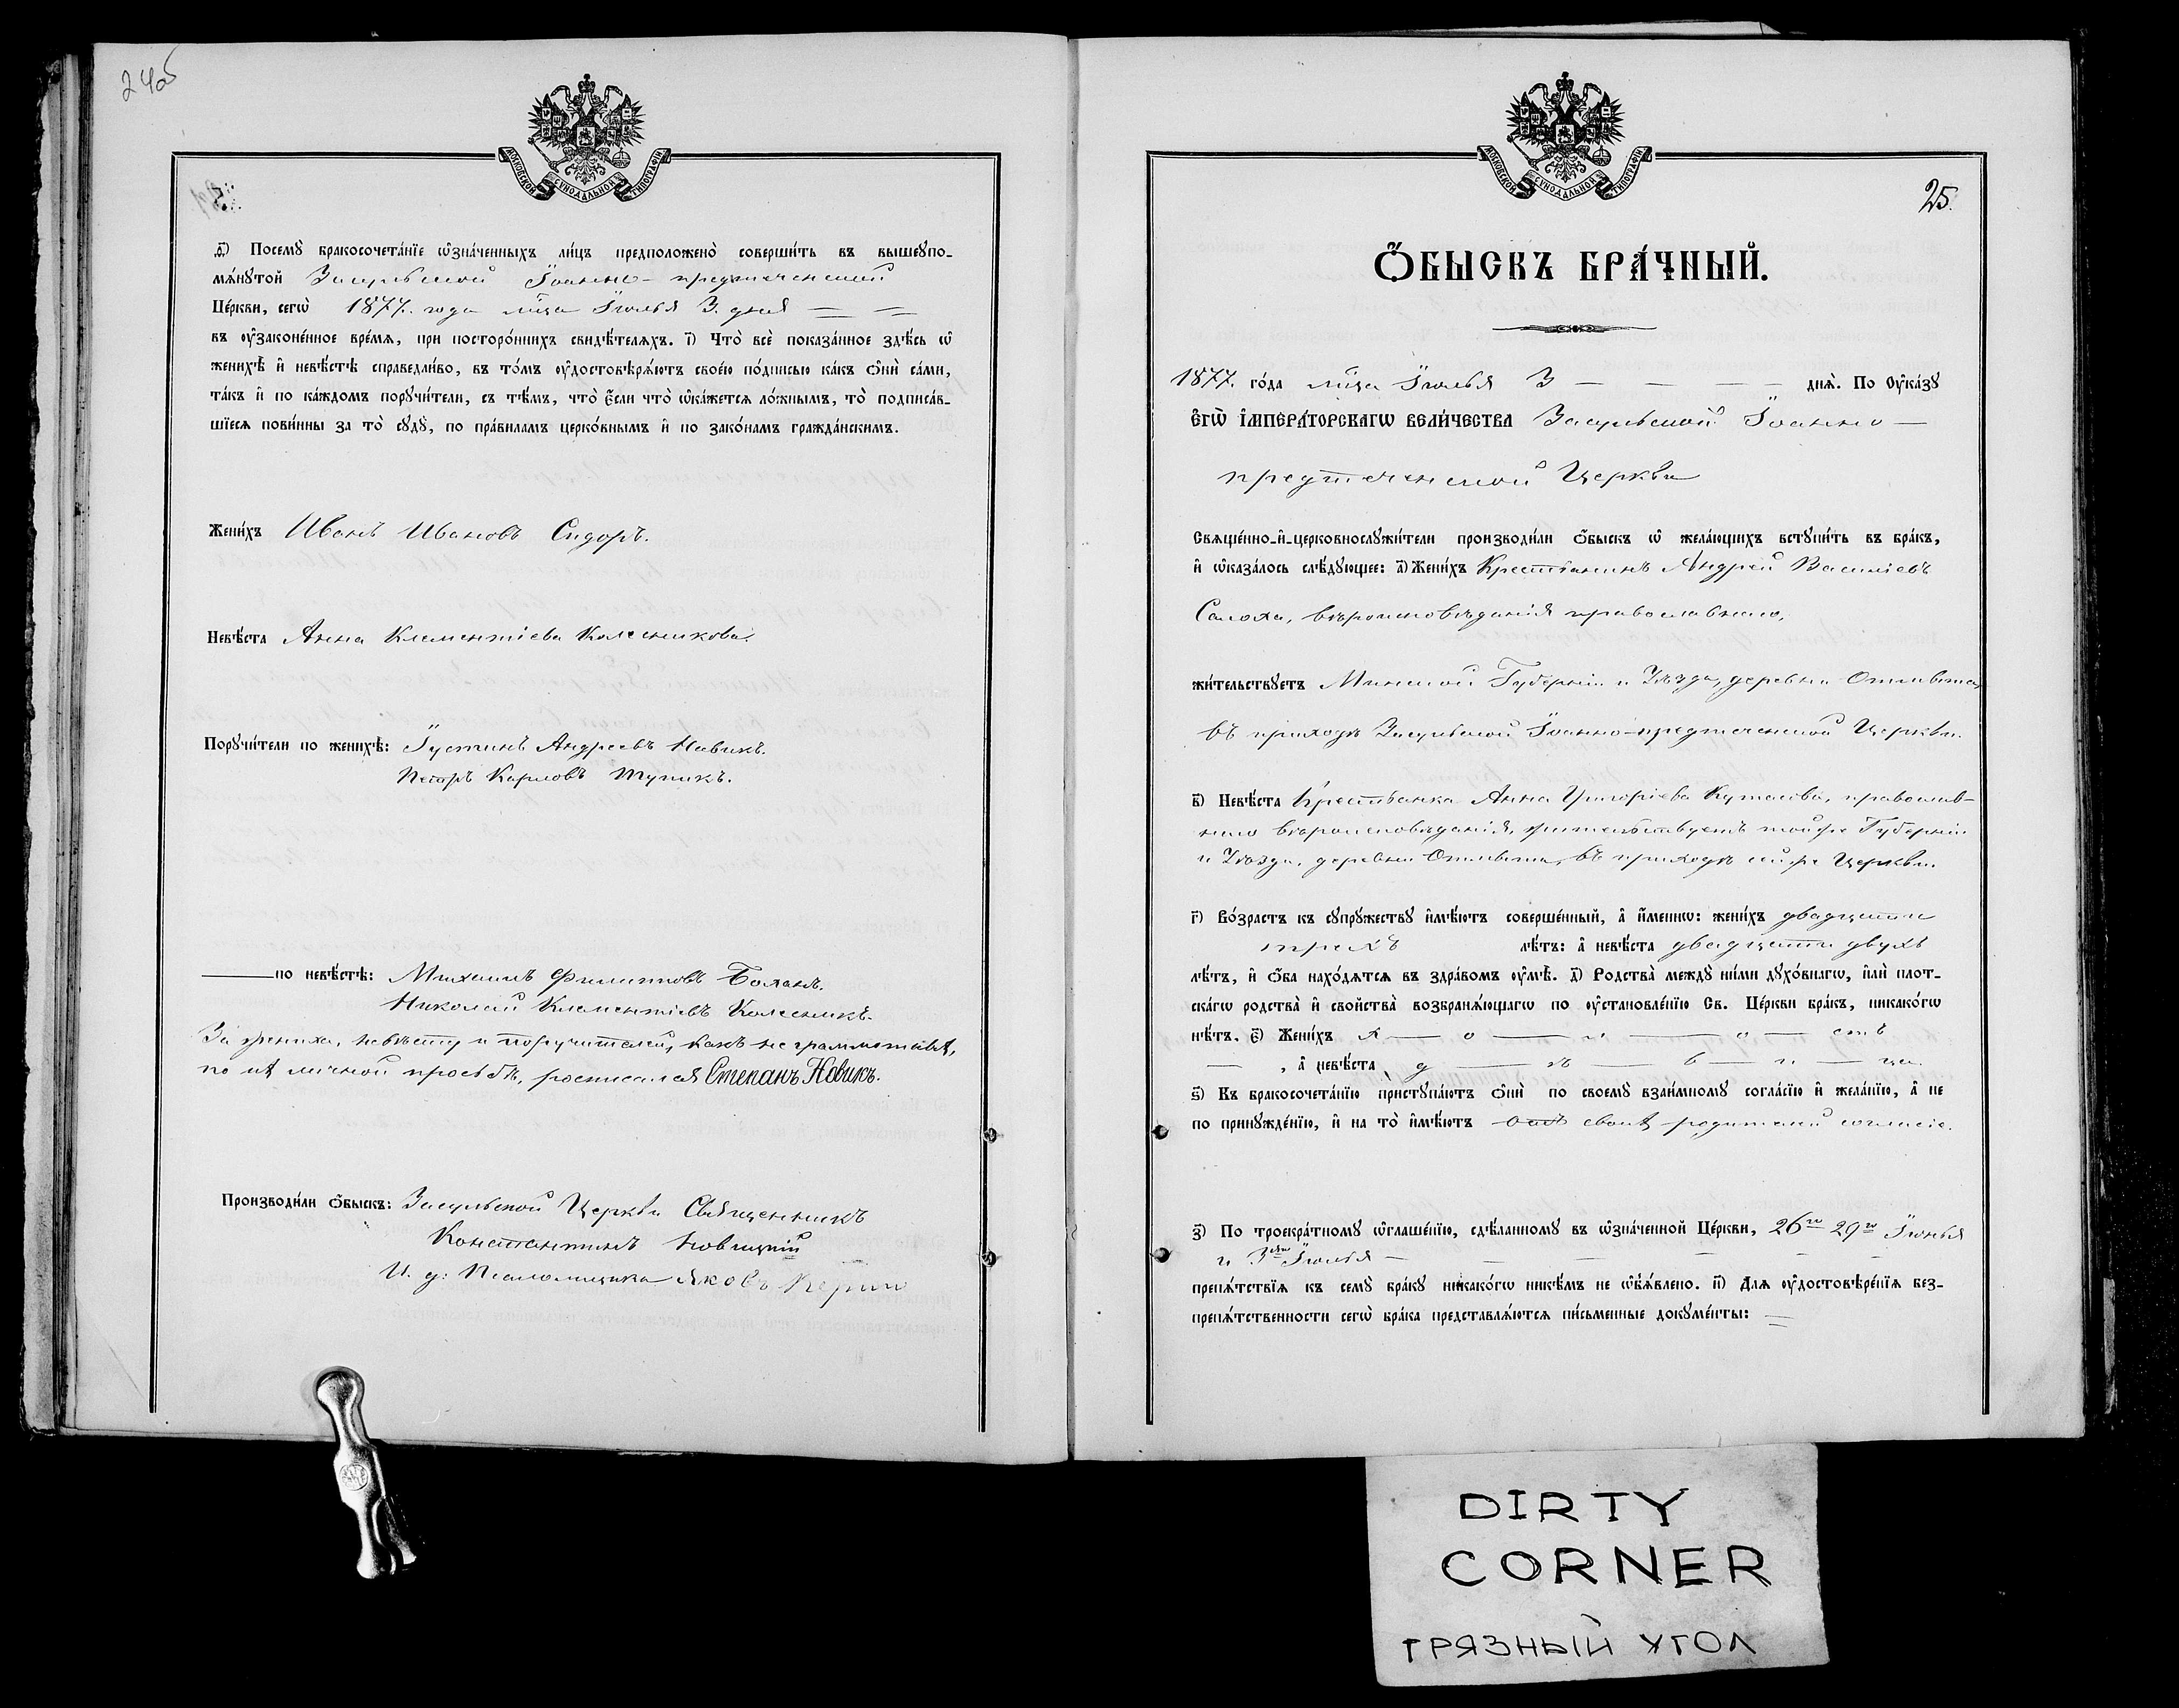 24об
МОСКОВСКОЙ СУНОДАЛЬНОЙ ТИПОГРАФІИ
д҃) Посемꙋ̀ бракосочета́нїе ѡ҆зна́ченныхъ ли́цъ предположено̀ соверши́ть въ вышеꙋпо-
мѧ́нꙋтой Засульской Іоанно-предтеченской
Це́ркви, сегѡ̀ 1877. года мца Іюлья 3. дня
въ ᲂу҆законе́нное вре́мѧ, при посторо́ннихъ свидѣ́телѧхъ. і҃) Что̀ всѐ показа́нное здѣ́сь ѡ҆
женихѣ̀ и҆ невѣ́стѣ справедли́во, въ то́мъ ᲂу҆достовѣрѧ́ютъ свое́ю по́дписью ка́къ ѻ҆нѝ са́ми,
та́къ и҆ по ка́ждомъ порꙋчи́тели, съ тѣ́мъ, что̀ є҆́сли что̀ ѡ҆ка́жетсѧ ло́жнымъ, то̀ подписа́в-
шїесѧ пови́нны за то̀ сꙋдꙋ̀, по пра́виламъ церко́внымъ и҆ по зако́намъ гражда́нскимъ.
Жени́хъ Иванъ Ивановъ Сидоръ.
Невѣ́ста Анна Клементіева Колесникова.
Порꙋчи́тели по женихѣ̀: Іустинъ Андреевъ Новикъ.
Петръ Карповъ Тупикъ.
по невѣ́стѣ: Михаилъ Филиповъ Боханъ.
Николай Клементіевъ Колесникъ.
За жениха, невѣсту и поручителей, какъ не грамотныхъ,
по ихъ личной просьбѣ, росписался Степанъ Новикъ.
Производи́ли ѻ҆́быскъ: Засульской Церкви Священникъ
Константинъ Новицкій
И. д: Псаломщика Яковъ
МОСКОВСКОЙ СУНОДАЛЬНОЙ ТИПОГРАФІИ
25.
Ѻ҆́БЫСКЪ БРА́ЧНЫЙ.
1877. го́да мца Іюлья 3 днѧ̀. По Оу҆ка́зꙋ
Є҆ГѠ̀ І҆МПЕРА́ТОРСКАГѠ ВЕЛИ́ЧЕСТВА Засульской Іоанно-
предтеченской Церкви
Свѧще́нно-и҆-церковнослꙋжи́тели производи́ли ѻ҆́быскъ ѡ҆ жела́ющихъ встꙋпи́ть въ бра́къ,
и҆ ѡ҆каза́лось слѣ́дꙋющее: а҃) Жени́хъ Крестьянинъ Андрей Василіевъ
Салоха, вѣроисповѣданія православнаго,
жи́тельствꙋетъ Минской Губерніи и Уѣзда, деревни
въ приходѣ Засульской Іоанно-предтеченской Церкви.
в҃) Невѣ́ста Крестьянка Анна Григоріева православ-
наго вѣроисповѣданія, жительствуетъ той же Губерніи
и Уѣзда, деревни въ приходѣ сей же Церкви.
г҃) Во́зрастъ къ сꙋпрꙋ́жествꙋ и҆мѣ́ютъ соверше́нный, а҆ и҆́меннѡ: жени́хъ двадцати
трехъ лѣ́тъ: а҆ невѣ́ста двадцати двухъ
лѣ́тъ, и҆ ѻ҆́ба нахо́дѧтсѧ въ здра́вомъ ᲂу҆мѣ̀. д҃) Родства̀ междꙋ̀ ни́ми дꙋхо́внагѡ, и҆лѝ плот-
ска́гѡ родства̀ и҆ сво́йства̀ возбранѧ́ющагѡ по ᲂу҆становле́нїю Св. Це́ркви бра́къ, никако́гѡ
нѣ́тъ. є҃) Жени́хъ х — о — л — о — стъ
, а҆ невѣ́ста д — ѣ — в — и — ца.
ѕ҃) Къ бракосочета́нїю пристꙋпа́ютъ ѻ҆нѝ по своемꙋ̀ взаи́мномꙋ согла́сїю и҆ жела́нїю, а҆ не
по принꙋжде́нїю, и҆ на то̀ и҆мѣ́ютъ отъ своихъ родителей согласіе.
з҃) По троекра́тномꙋ ѡ҆глаше́нїю, сдѣ́ланномꙋ въ ѡ҆зна́ченной Це́ркви, 26го 29го Іюнья
и 3его Іюлья
препѧ́тствїѧ къ семꙋ̀ бра́кꙋ никако́гѡ никѣ́мъ не ѡ҆б̾ѧ́влено. и҃) Длѧ ᲂу҆достовѣре́нїѧ без-
препѧ́тственности сегѡ̀ бра́ка представлѧ́ютсѧ пи́сьменные докꙋме́нты:
DIRTY
CORNER
ГРЯЗНЫЙ УГОЛ